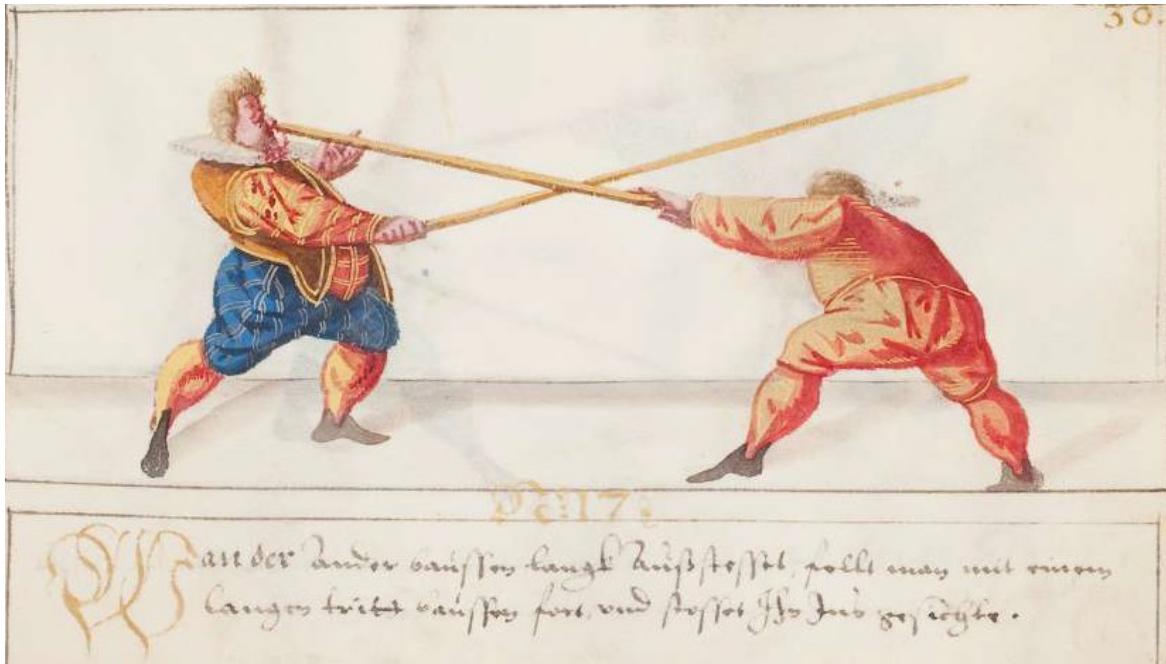 30.
17:
Wan der Ander baussen langk Außstosset, fellt man mit einem
langen tritt baussen fort, vnd stosset Ihn Ins gesichte.